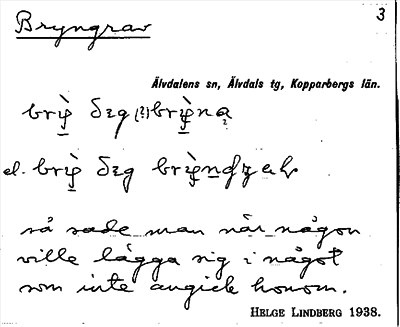 Bryngrav
3
Älvdalens sn, Älvdals tg, Kopparbergs län.
så sade man när någon
ville lägga sig i något
som inte angick honom.
HELGE LINDBERG 1938.